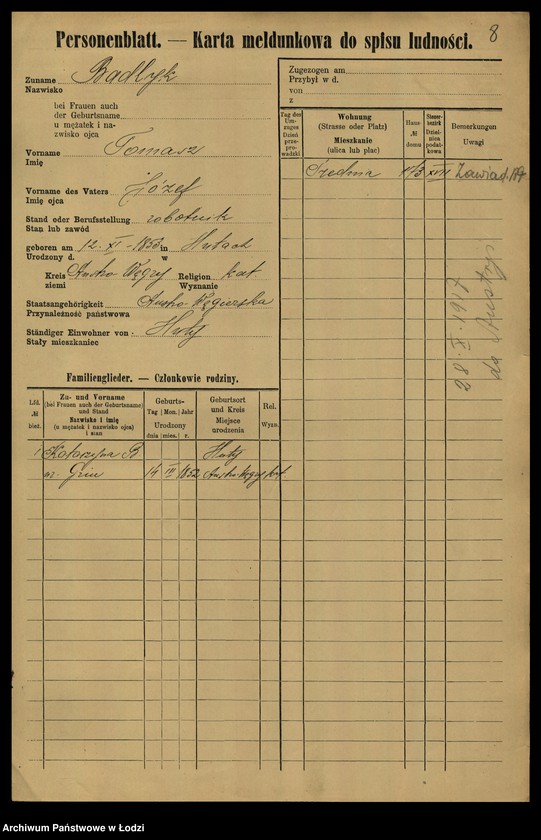 8
Personenblatt. — Karta meldunkowa do spisu ludności.
Zuname Badlyk
Nazwisko
bei Frauen auch
der Geburtsname
u mężatek i na-
zwisko ojca
Vorname Tomasz
Imię
Vorname des Vaters Józef
Imię ojca
Stand oder Berufsstellung robotnik
Stan lub zawód
geboren am 12. XI - 1853 in Hutach
Urodzony d. w
Kreis Austro Węgry Religion kat
ziemi Wyznanie
Staatsangehörigkeit Austro-Węgierska
Przynależność państwowa
Ständiger Einwohner von Huty
Stały mieszkaniec
Familienglieder. — Członkowie rodziny.
Lfd. № bież.
Zu- und Vorname
(bei Frauen auch der Geburtsname)
und Stand
Nazwisko i imię
(u mężatek i nazwisko ojca)
i stan
Geburts-
Tag Mon. Jahr
Urodzony
dnia mies. r.
Geburtsort
und Kreis
Miejsce
urodzenia
Rel.
Wyzn.
1 Katarzyna B Huty
14 III 1852 Austro Węgry kat
Zugezogen am
Przybył w d.
von
z
Tag des
Um-
zuges
Dzień
prze-
prowadzki
Wohnung
(Strasse oder Platz)
Mieszkanie
(ulica lub plac)
Haus
№
domu
Steuer-
bezirk
Dziel-
nica
podat-
kowa
Bemerkungen
Uwagi
Średnia 113 XVII
28. X. 1917
do Austryi
Archiwum Państwowe w Łodzi